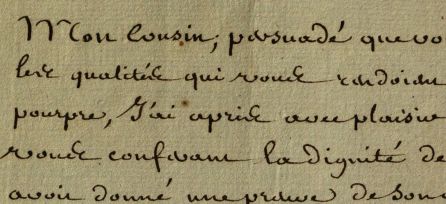 Mon Cousin, persuadé que vo
les qualités qui vous rendoien
pourpre, J'ai apris avec plaisir
vous conferant la dignité de
avoit donné une preuve de son